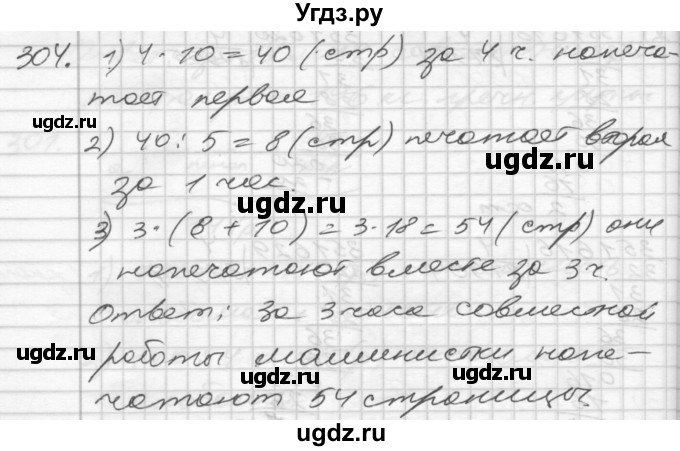 Угдз.ру
304. 1) 4 · 10 = 40 (стр) за 4 ч. напеча-
тает первая
ugdz.ru ugdz.ru
2) 40 : 5 = 8 (стр) печатает вторая
ugdz.ru
за 1 час.
ugdz.ru
3) 3 · (8 + 10) = 3 · 18 = 54 (стр) они
напечатают вместе за 3 ч.
ugdz.ru
Ответ: за 3 часа совместной
ugdz.ru ugdz.ru
работы машинистки напе-
ugdz.ru
чатают 54 страницы.
ugdz.ru
ugdz.ru